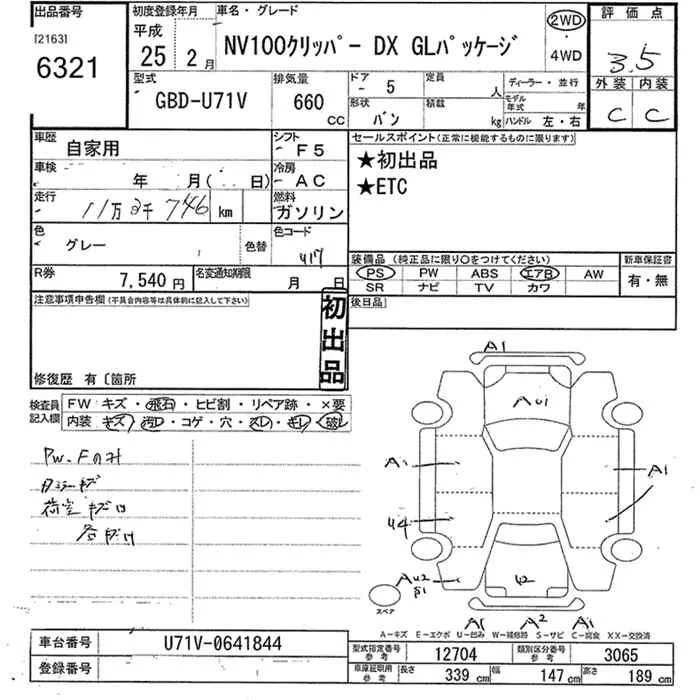 出品番号
[2163]
6321
初度登録年月
平成
25 2 月
車名・グレード
NV100クリッパー DX GLパッケージ
2WD
4WD
評価点
3.5
外装 内装
C C
型式
GBD-U71V
排気量
660
CC
ドア
- 5
形状
バン
定員
人
積載
kg
ディーラー・並行
モデル年式 年
ハンドル 左・右
車歴
自家用
シフト
F5
車検
年 月( 日)
冷房
AC
走行
11万2千746 km
燃料
ガソリン
色
グレー
色替
色コード
R券
7,540 円
名変通知期限
月 日
セールスポイント(正常に機能するものに限ります)
★初出品
★ETC
装備品(純正品に限り○をつけてください)
PS PW ABS エアB AW
SR ナビ TV カワ
新車保証書
有・無
後日品
注意事項申告欄(不具合内容等は具体的に記入して下さい)
初出品
修復歴 有〔箇所
検査員記入欄
FW キズ・飛石・ヒビ割・リペア跡・×要
内装 キズ・汚レ・コゲ・穴・スレ・キレ・破レ
PW.Fのみ
荷室キズ凹
A1
AU1
A1
A1
U4
AU2
S1
U2
A1 A2 A1
スペア
A-キズ E-エクボ U-凹み W-補修跡 S-サビ C-腐食 XX-交換済
車台番号
U71V-0641844
登録番号
型式指定番号
参考
12704
類別区分番号
参考
3065
車庫証明用
参考
長さ 339 cm 幅 147 cm 高さ 189 cm